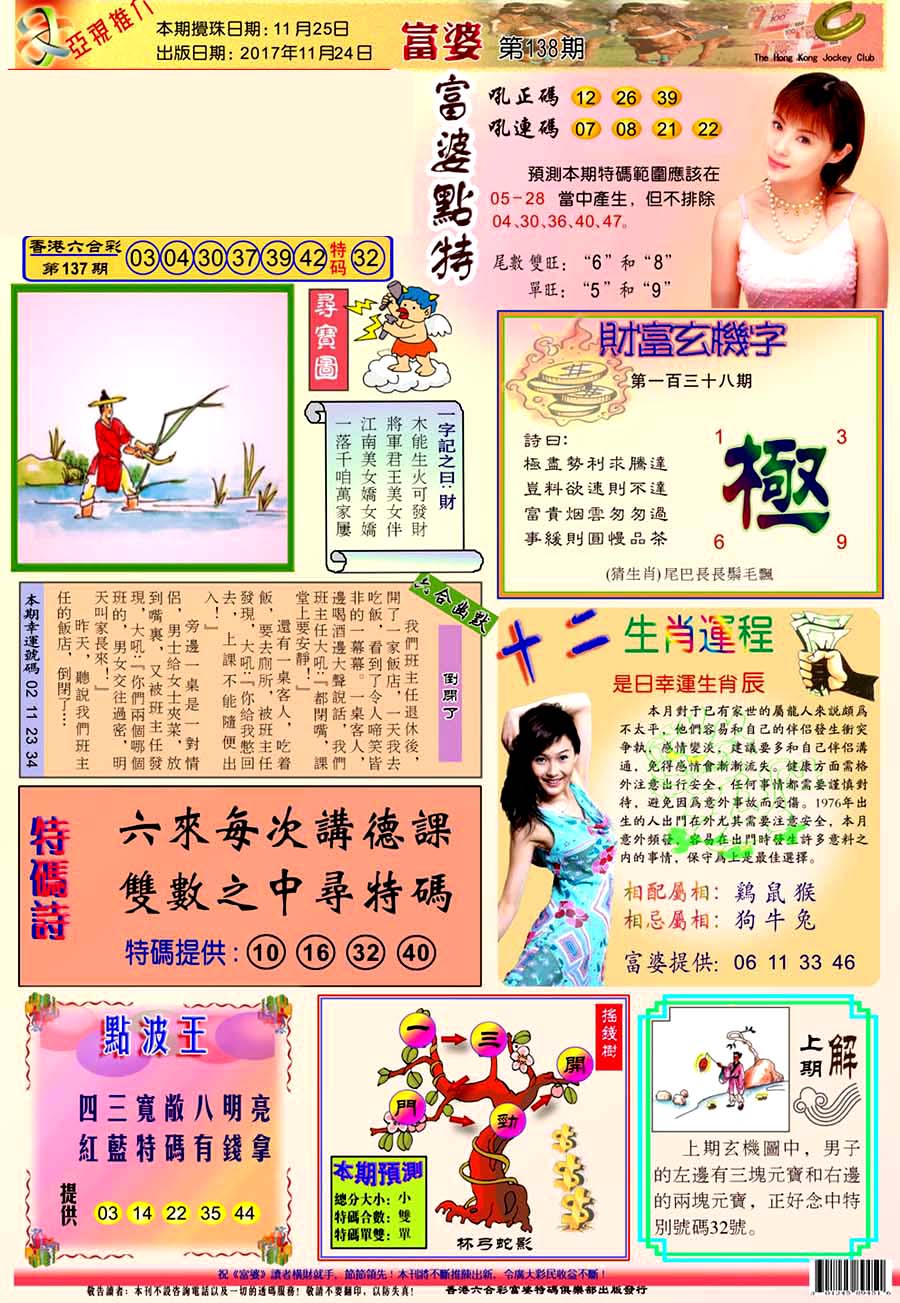 亞視推介
本期攪珠日期: 11月25日
出版日期: 2017年11月24日
富婆 第138期
The Hong Kong Jockey Club
富婆點特
吼正碼 12 26 39
吼連碼 07 08 21 22
預測本期特碼範圍應該在
05-28 當中產生,但不排除
04、30、36、40、47。
尾數雙旺: “6”和“8”
單旺: “5”和“9”
香港六合彩
第137期
03 04 30 37 39 42 特码 32
尋寶圖
一字記之曰:財
木能生火可發財
將軍君王美女伴
江南美女嬌嬌
一落千咱萬家屢
財富玄機字
第一百三十八期
詩曰:
極盡勢利求騰達
豈料欲速則不達
富貴烟雲匆匆過
事緩則圓慢品茶
極
1 3
6 9
(猜生肖)尾巴長長鬃毛飄
六合幽默
倒閉了
我們班主任退休後,
開了一家飯店,一天我去
吃飯,看到了令人啼笑皆
非的一幕幕。一桌客人,
邊喝酒邊大聲說話,我們
班主任大吼:『都閉嘴,課
堂上要安靜!』
還有一桌客人,吃着
飯,要去廁所,被班主任
發現,大吼:『你給我憋回
去,上課不能隨便出
入!』
旁邊一桌是一對情
侶,男士給女士夾菜,放
到嘴裏,又被班主任發
現,大吼:『你們兩個哪個
班的,男女交往過密,明
天叫家長來!』
昨天,聽說我們班主
任的飯店,倒閉了…
本期幸運號碼 02 11 23 34
十二生肖運程
是日幸運生肖辰
本月對于已有家世的屬龍人来說頗爲
不太平,他們容易和自己的伴侣發生衝突
争執,感情變淡,建議要多和自己伴侣溝
通,免得感情會漸漸流失。健康方面需格
外注意出行安全,任何事情都需要謹慎對
待,避免因爲意外事故而受傷。1976年出
生的人出門在外尤其需要注意安全,本月
意外頻發,容易在出門時發生許多意料之
内的事情,保守爲上是最佳選擇。
相配屬相: 鷄 鼠 猴
相忌屬相: 狗 牛 兔
富婆提供: 06 11 33 46
特碼詩
六來每次講德課
雙數之中尋特碼
特碼提供: 10 16 32 40
點波王
四三寬敞八明亮
紅藍特碼有錢拿
提供 03 14 22 35 44
搖錢樹
一 三 開
門 勁
本期預測
總分大小: 小
特碼合數: 雙
特碼單雙: 單
杯弓蛇影
上期解
上期玄機圖中,男子
的左邊有三塊元寶和右邊
的兩塊元寶,正好念中特
别號碼32號。
祝《富婆》讀者橫財就手,節節領先!本刊將不斷推陳出新,令廣大彩民收益不斷!
敬告讀者: 本刊不設咨詢電話以及一切的透碼服務!敬請不要翻印,以防失真! 香港六合彩富婆特碼俱樂部出版發行